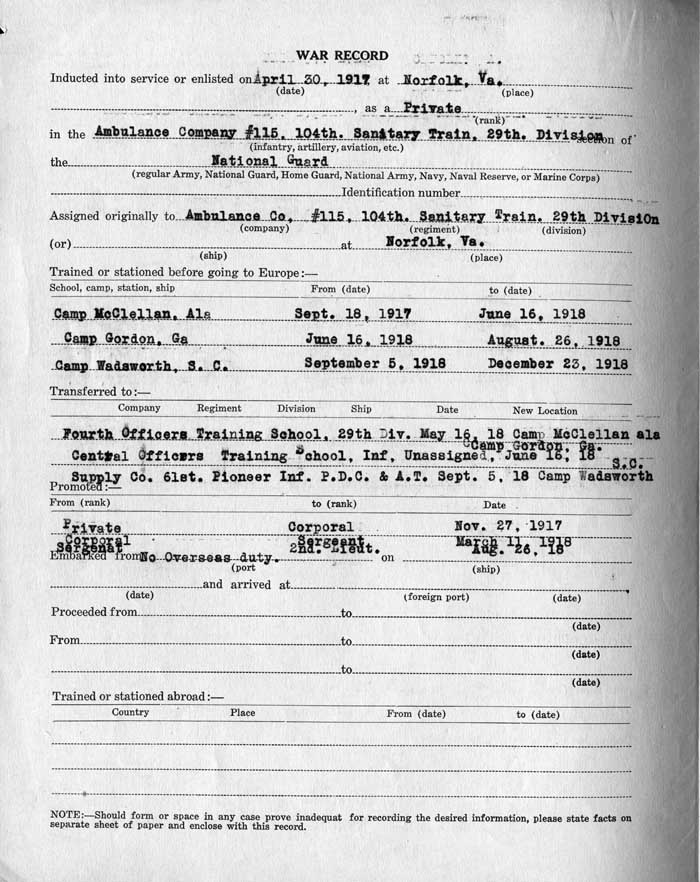 WAR RECORD
Inducted into service or enlisted on April 30, 1917 at Norfolk, Va.
(date) (place)
, as a Private
(rank)
in the Ambulance Company #115, 104th. Sanitary Train, 29th. Division section of
(infantry, artillery, aviation, etc.)
the National Guard
(regular Army, National Guard, Home Guard, National Army, Navy, Naval Reserve, or Marine Corps)
Identification number
Assigned originally to Ambulance Co, #115, 104th. Sanitary Train. 29th Division
(company) (regiment) (division)
(or) at Norfolk, Va.
(ship) (place)
Trained or stationed before going to Europe:—
School, camp, station, ship From (date) to (date)
Camp McClellan, Ala Sept. 18, 1917 June 16, 1918
Camp Gordon, Ga June 16, 1918 August. 26, 1918
Camp Wadsworth, S. C. September 5, 1918 December 23, 1918
Transferred to:—
Company Regiment Division Ship Date New Location
Fourth Officers Training School, 29th Div. May 16, 18 Camp McClellan ala
Camp Gordon, Ga.
Central Officers Training School, Inf, Unassigned, June 16, 18
S.C.
Supply Co. 61st. Pioneer Inf. P.D.C. & A.T. Sept. 5, 18 Camp Wadsworth
Promoted:—
From (rank) to (rank) Date
Private Corporal Nov. 27, 1917
Corporal Sergeant March 11, 1918
Sergenat 2nd. Lieut. Aug. 26, 18
Embarked from No Overseas duty. on
(port (ship)
and arrived at
(date) (foreign port) (date)
Proceeded from to
(date)
From to
(date)
to
(date)
Trained or stationed abroad:—
Country Place From (date) to (date)
NOTE:—Should form or space in any case prove inadequat for recording the desired information, please state facts on
separate sheet of paper and enclose with this record.